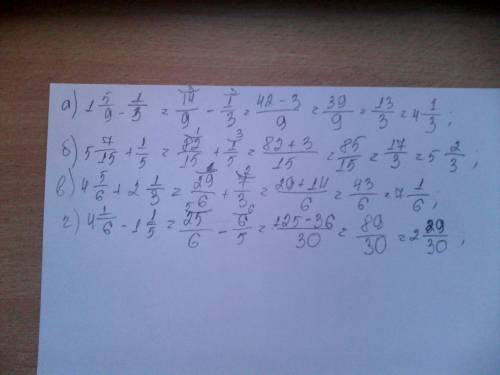 а) 1 5/9 - 1/3 = 14/9 - 1/3 = (42-3)/9 = 39/9 = 13/3 = 4 1/3;
б) 5 7/15 + 1/5 = 82/15 + 1/5 = (82+3)/15 = 85/15 = 17/3 = 5 2/3;
в) 4 5/6 + 2 1/3 = 29/6 + 7/3 = (29+14)/6 = 43/6 = 7 1/6;
г) 4 1/6 - 1 1/5 = 25/6 - 6/5 = (125-36)/30 = 89/30 = 2 29/30;